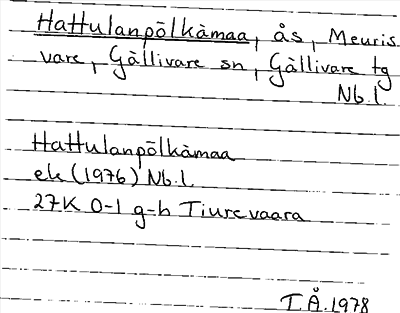 Hattulanpõlkàmaa, ås, Meuris
vare, Gällivare sn, Gällivare tg
Nb.l.
Hattulanpõlkàmaa
ek (1976) Nb.l.
27K 0-1 g-h Tiurevaara
T.Å.1978